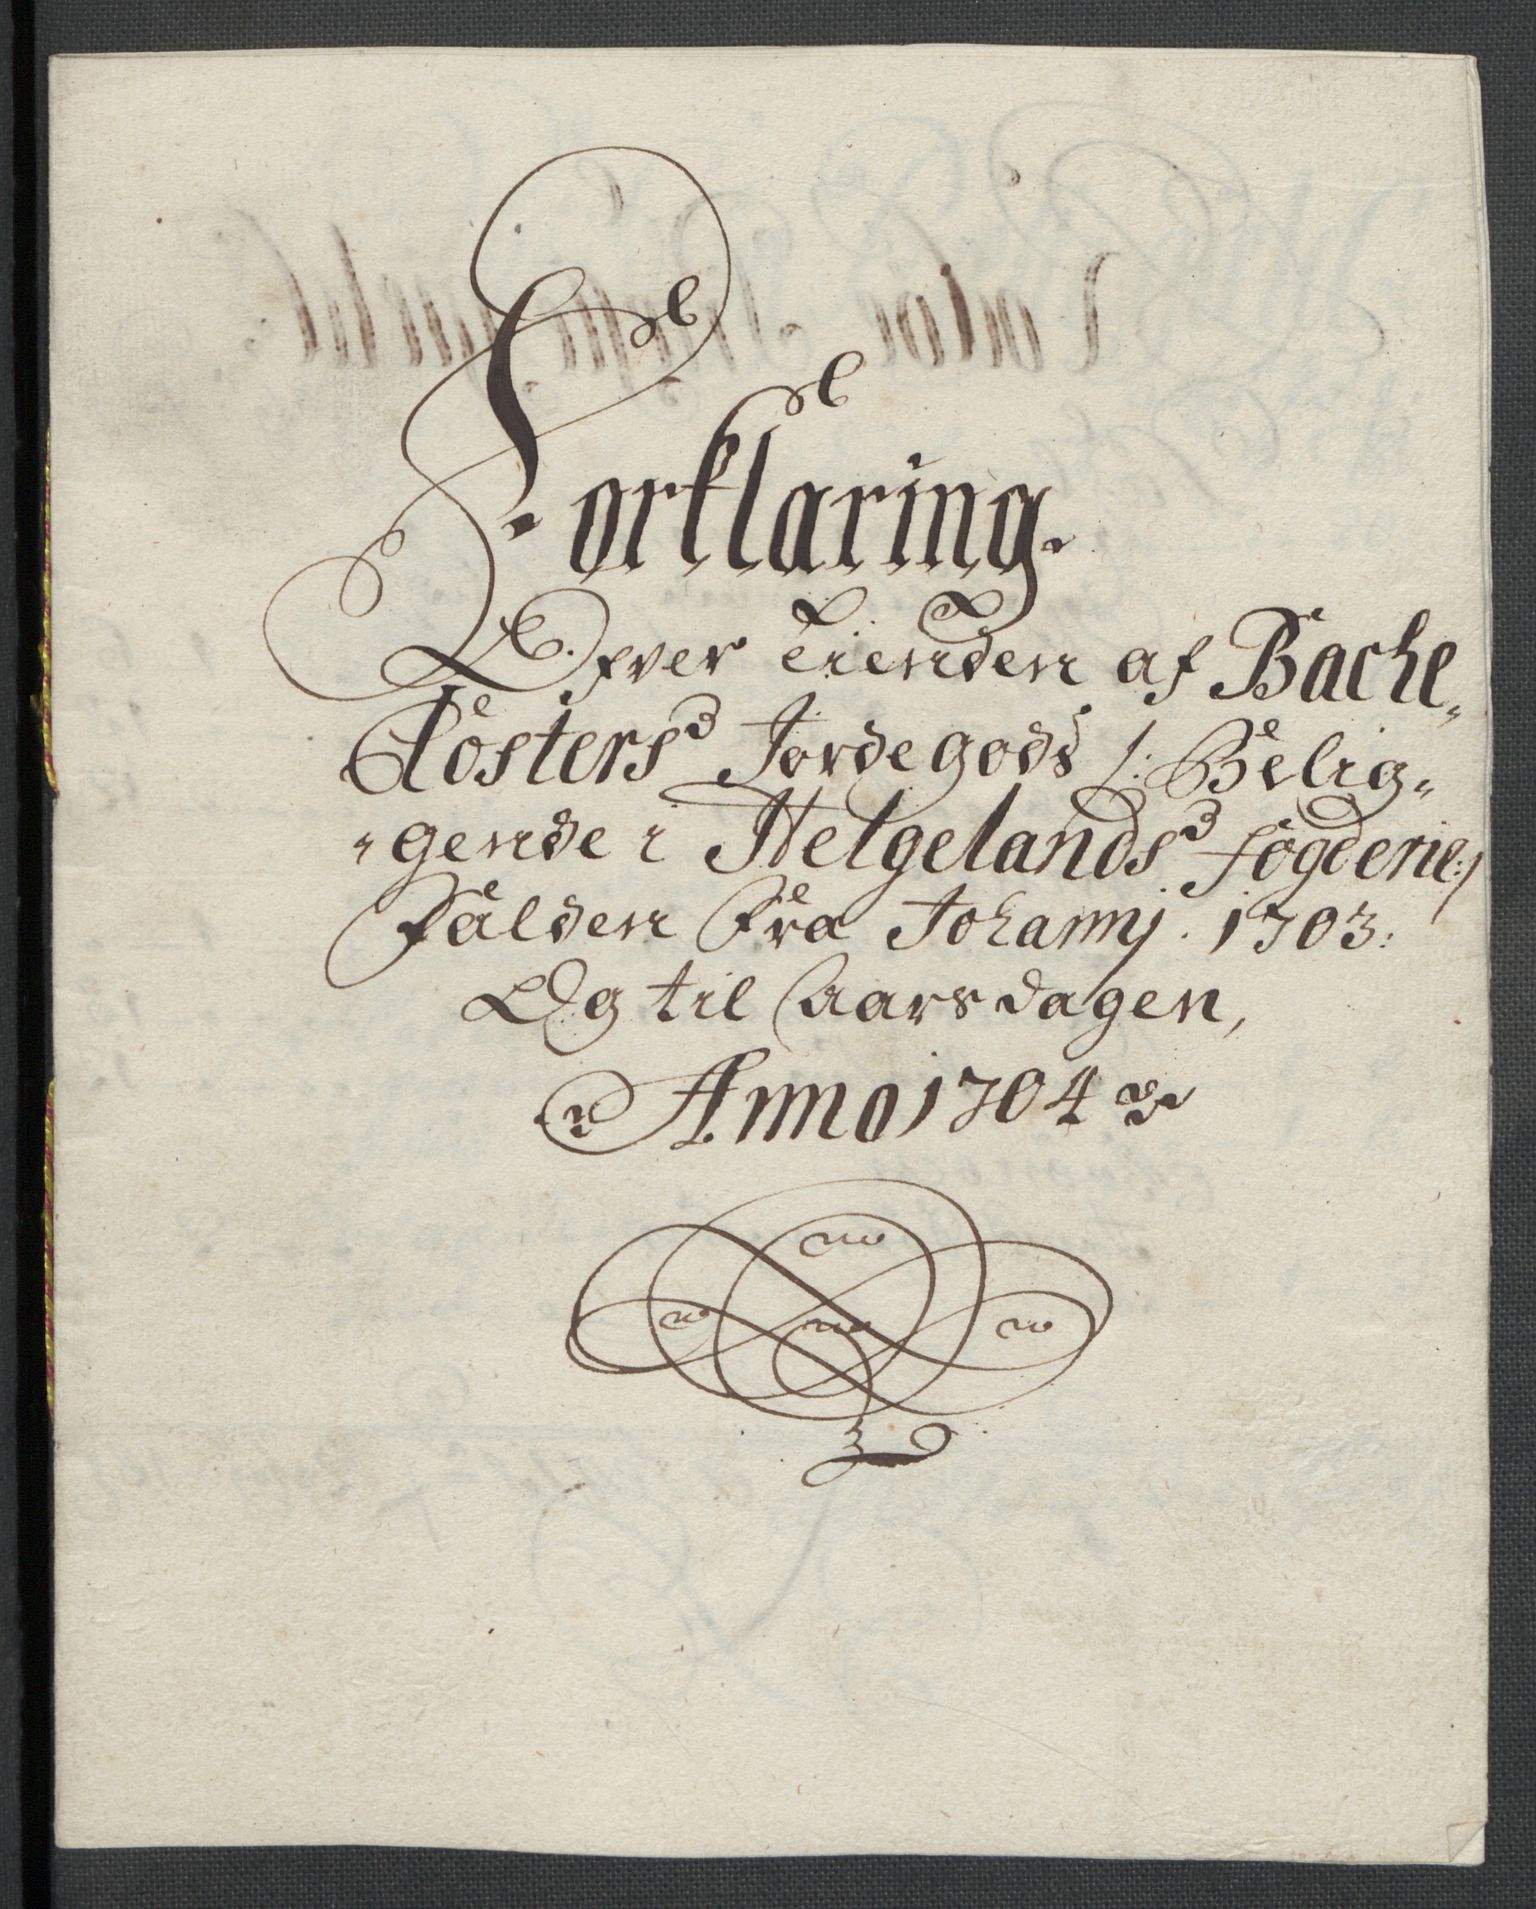 Forklaring.
Ofver Tienden af Bache„
Closters Jordegods /: Belig„
„gende i Helgelands fogderie:/
Falden Fra Johannj. 1703:
Og til Aarsdagen,
Anno 1704